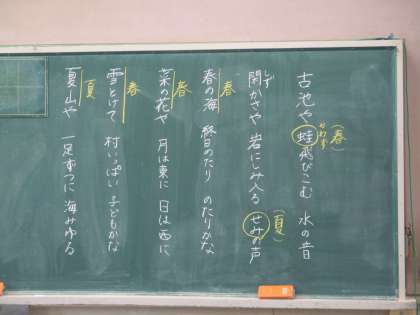 古池や 蛙飛びこむ 水の音
かわず
(春)
閑かさや 岩にしみ入る せみの声
しず
(夏)
春の海 終日のたり のたりかな
春
菜の花や 月は東に 日は西に
春
雪とけて 村いっぱい 子どもかな
春
夏山や 一足ずつに 海みゆる
夏